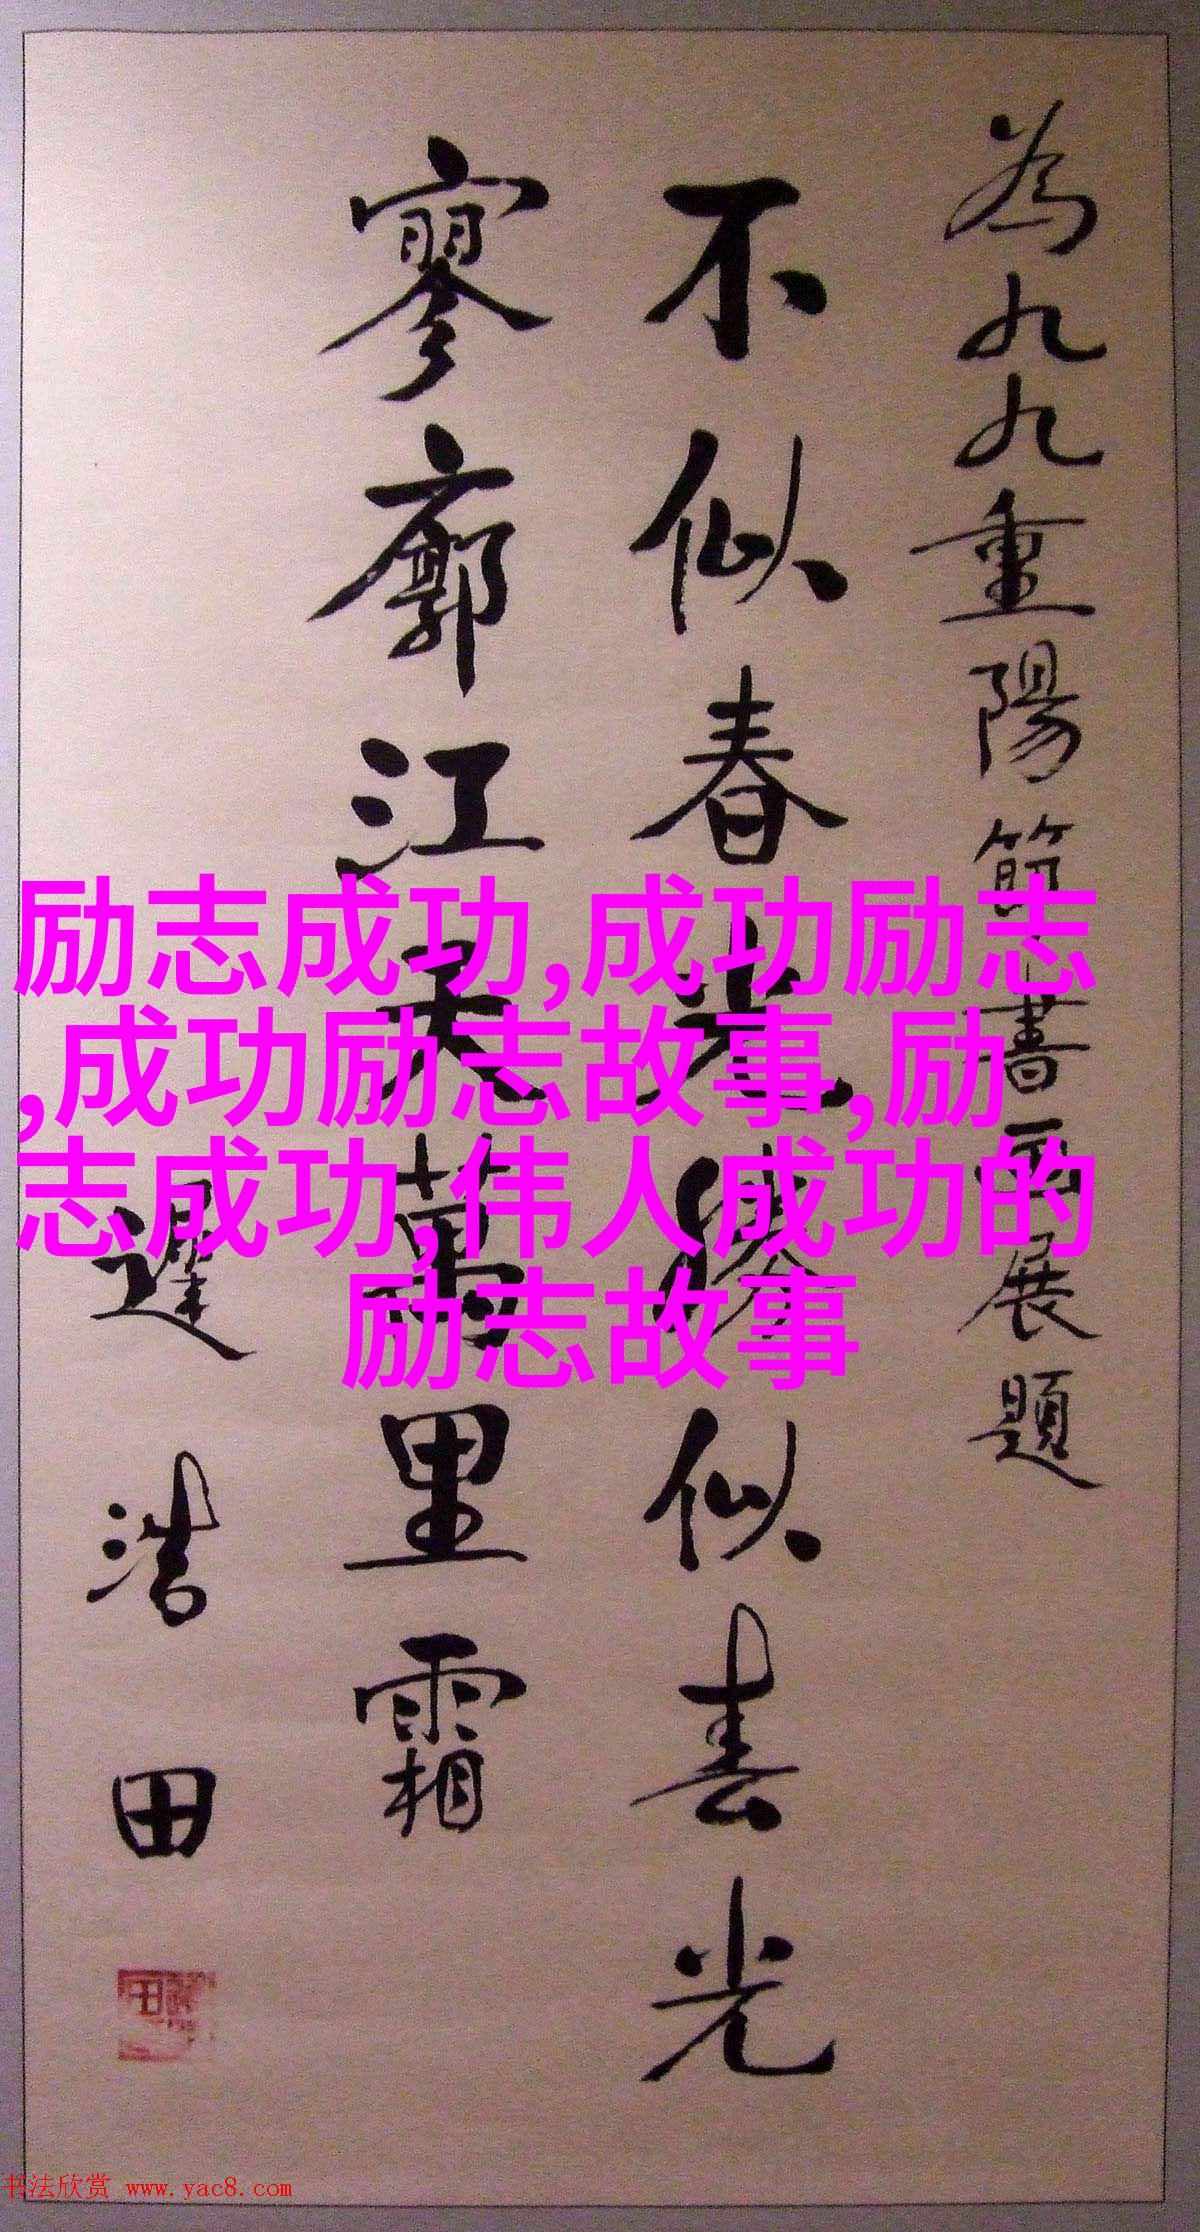 為九九重陽節書畫展題
不似春光勝似春光
寥廓江天萬里霜
遲浩田
励志成功,成功励志
,成功励志故事,励
志成功,伟人成功的
励志故事
书法欣赏 www.yac8.com